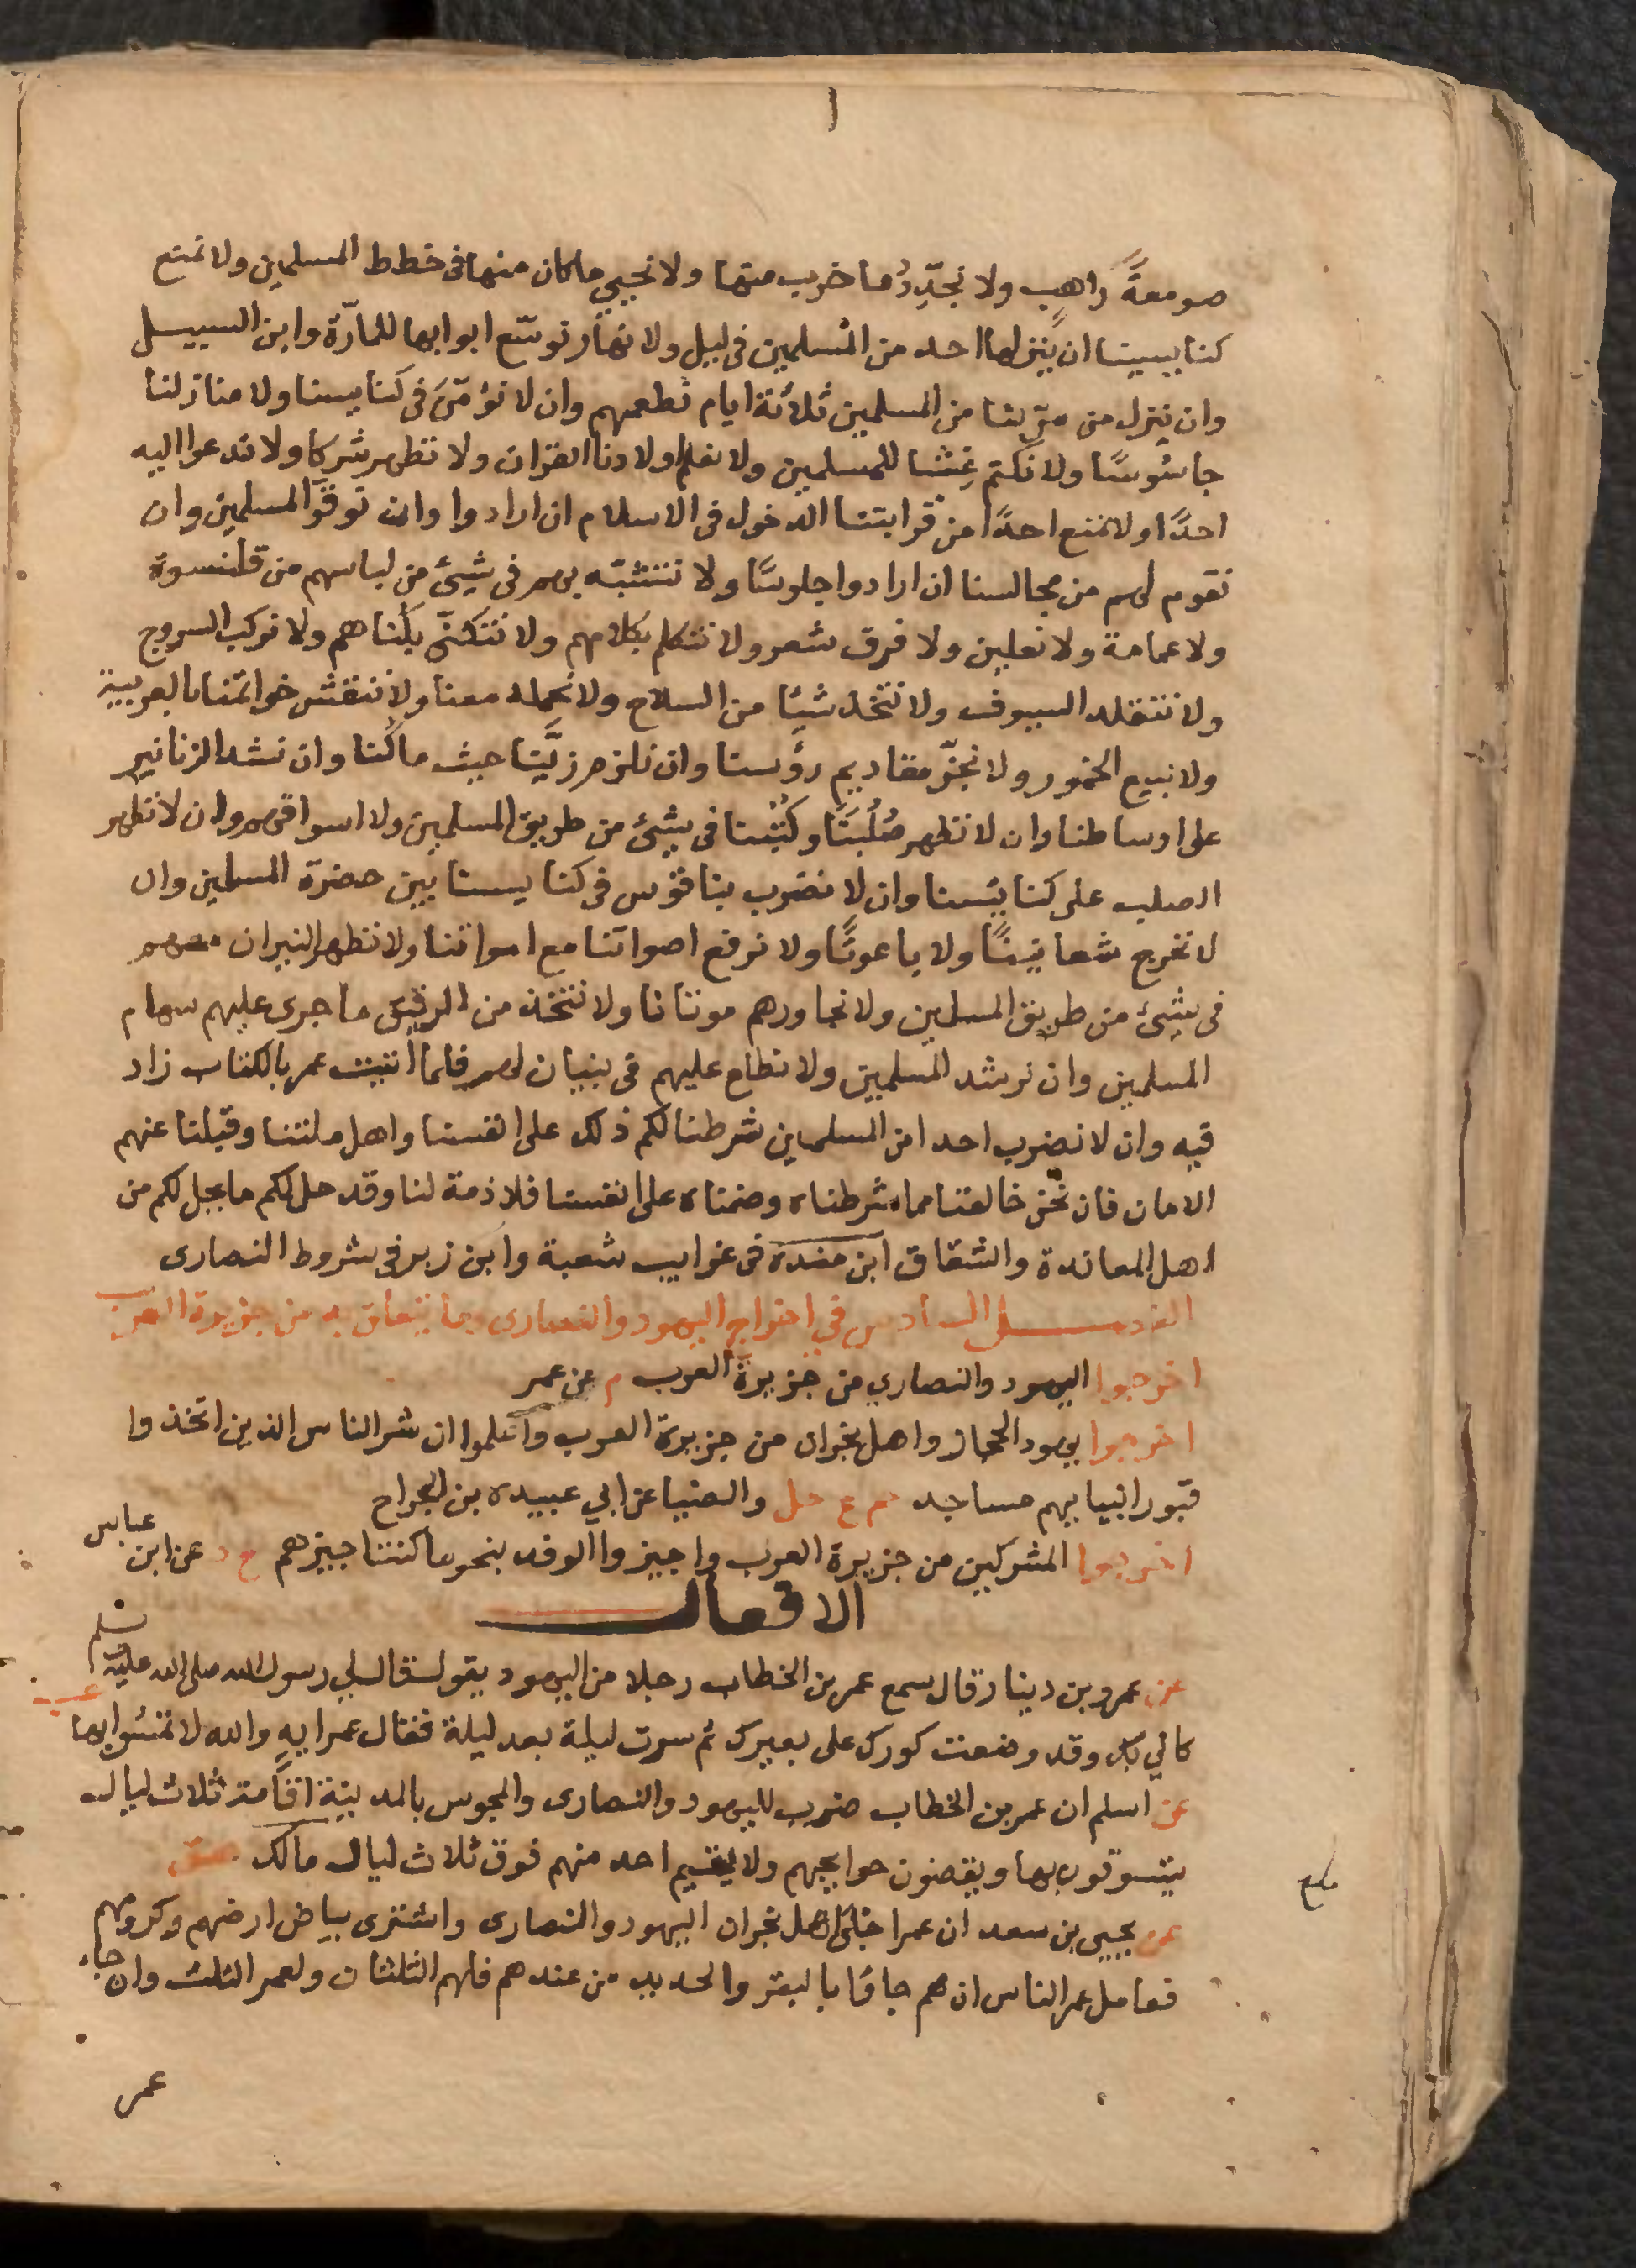 صومعةً راهبٍ ولا نجدّدُ ما خرب منها ولا نحيي ما كان منها فى خطط المسلمين ولا نمنع
كنايسنا ان ينزلها احد من المسلمين فى ليل ولا نهار نوسّع ابوابها للمارّة وابن السبيل
وان ننزل من مرّ بنا من المسلمين ثلاثة ايام نطعمهم وان لا نؤمّن فى كنايسنا ولا منازلنا
جاسُوسًا ولا نكتم غِشّا للمسلمين ولا نعلم اولادنا القران ولا نظهر شركا ولا ندعوا اليه
احدًا ولا نمنع احدًا من قرابتنا الدخول فى الاسلام ان ارادوا وان نوقّر المسلمين وان
نقوم لهم من مجالسنا ان ارادوا جلوسًا ولا نتشبّه بهم فى شيئ من لباسهم من قلنسوة
ولا عمامة ولا نعلين ولا فرق شعر ولا نتكلم بكلامهم ولا نتكنّى بكُناهم ولا نركب السروج
ولا نتقلد السيوف ولا نتخذ شيًا من السلاح ولا نحمله معنا ولا ننقش خواتمنا بالعربية
ولا نبيع الخمور ولا نجزّ مقاديم رؤسنا وان نلزم زيَّنا حيث ما كُنا وان نشد الزنانير
على اوساطنا وان لا نظهر صُلُبنَا وكُتُبنا فى شيئ من طريق المسلمين ولا اسواقهم وان لا نظهر
الصليب على كنائسنا وان لا نضرب بناقوس فى كنايسنا بين حضرة المسلمين وان
لا نخرج شعانينًا ولا باعوثًا ولا نرفع اصواتنا مع امواتنا ولا نظهر النيران معهم
فى شيئ من طريق المسلمين ولا نجاورهم موتانا ولا نتخذ من الرقيق ما جرى عليهم سهام
المسلمين وان نرشد المسلمين ولا نطلع عليهم فى بنيان لهم فلما اتيت عمر بالكتاب زاد
فيه وان لا نضرب احدا من المسلمين شرطنا لكم ذلك على انفسنا واهل ملتنا وقبلنا عنهم
الامان فان نحن خالفنا مما شرطناه وضمناه على انفسنا فلا ذمة لنا وقد حل لكم ما يحل لكم من
اهل المعاندة والشقاق ابن منده فى غرايب شعبة وابن زبر فى شروط النصارى
الفصل السادس في اخراج اليهود والنصارى وما يتعلق به من جزيرة العرب
اخرجوا اليهود والنصارى من جزيرة العرب م عن عمر
اخرجوا يهود الحجاز واهل نجران من جزيرة العرب واعلموا ان شر الناس الذين اتخذوا
قبور انبيايهم مساجد حم ع حل والضيا عن ابي عبيده بن الجراح
اخرجوا المشركين من جزيرة العرب واجيزوا الوفد بنحو ما كنت اجيزهم خ د عن ابن عباس
الافعال
عن عمرو بن دينار قال سمع عمر بن الخطاب رجلا من اليهود يقول قال لي رسول الله صلى الله عليه وسلم
كاني بك وقد وضعت كورك على بعيرك ثم سرت ليلة بعد ليلة فقال عمر ايهِ والله لا تمسُوا بها عب
عن اسلم ان عمر بن الخطاب ضرب لليهود والنصارى والمجوس بالمدينة اقامة ثلاث ليال
يتسوقون بها ويقضون حوايجهم ولا يقيم احد منهم فوق ثلاث ليال مالك هق
عن يحيى بن سعد ان عمر اجلى اهل نجران اليهود والنصارى واشترى بياض ارضهم وكرومهم
فعامل عمر الناس ان هم جاؤا بالبقر والحديد من عندهم فلهم الثلثان ولعمر الثلث وان جاء
عمر